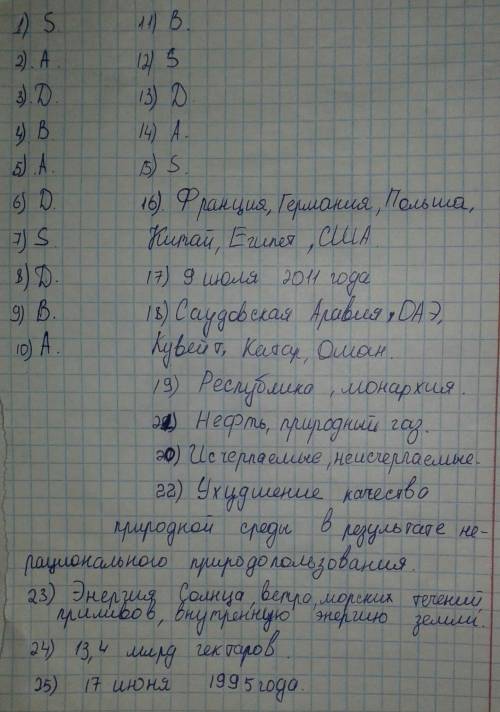 1) S. 11) B.
2). A. 12) S
3). D. 13) D
4) B 14) A.
5) A. 15) S.
6) D. 16). Франция, Германия, Польша,
7) S Китай, Египет, США.
8) D. 17) 9 июля 2011 года
9) B. 18) Саудовская Аравия, ОАЭ,
10) A. Кувейт, Катар, Оман.
19) Республика, монархия.
21) Нефть, природный газ.
20) Исчерпаемые, неисчерпаемые.
22) Ухудшение качества
природной среды в результате не-
рационального природопользования.
23) Энергия Солнца ветра, морских течений,
приливов, внутреннюю энергию земли.
24) 13,4 млрд гектаров.
25) 17 июня 1995 года.